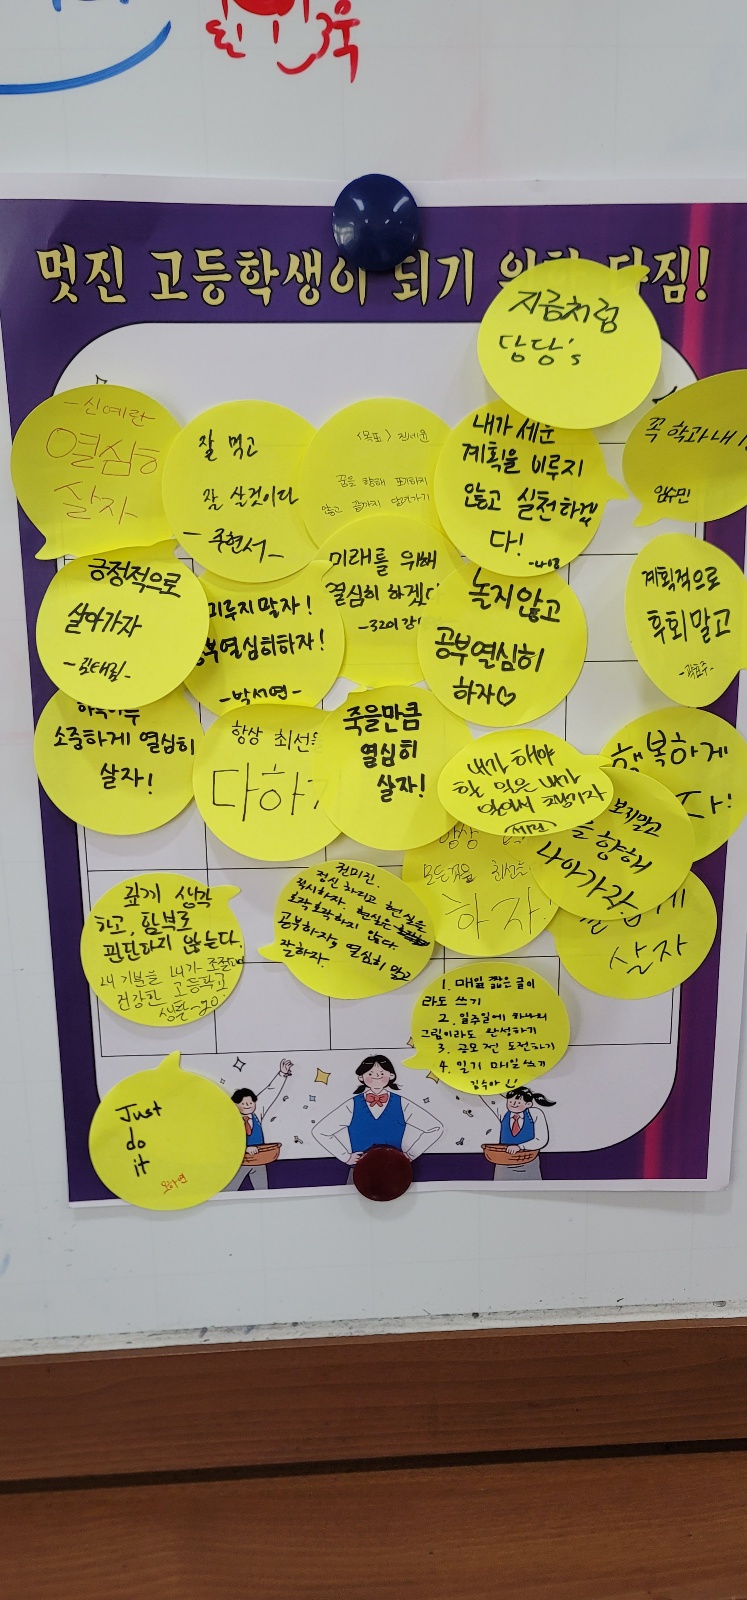 멋진 고등학생이 되기 위한 다짐!
지금처럼
담당's
-신예란-
열심히
살자
잘 먹고
잘 살것이다
-주현서-
<목표> 진세운
꿈을 향해 포기하지
않고 끝까지 달려가기
내가 세운
계획을 미루지
않고 실천하겠
다!
꼭 학과내
임수민
긍정적으로
살아가자
-김태림-
미루지 말자!
공부열심히하자!
-박서연-
미래를 위해
열심히 하겠다
놀지않고
공부열심히
하자♡
계획적으로
후회말고
하루하루
소중하게 열심히
살자!
항상 최선을
다하자
죽을만큼
열심히
살자!
내가 해야
할 일은 내가
알아서 챙기자
행복하게
보지말고
향해
나아가자.
항상
모든일을 최선을
하자!
살자
깊게 생각
하고, 함부로
판단하지 않는다.
내 기분을 내가 조절하며
건강한 고등학교
생활~go!
전미진.
정신 차리고 현실을
직시하자. 현실은
호락호락하지 않다
공부하자, 열심히 말고
잘하자.
1. 매일 짧은 글이
라도 쓰기
2. 일주일에 하나의
그림이라도 완성하기
3. 공모전 도전하기
4. 일기 매일 쓰기
김수아
Just
do
it
오하연